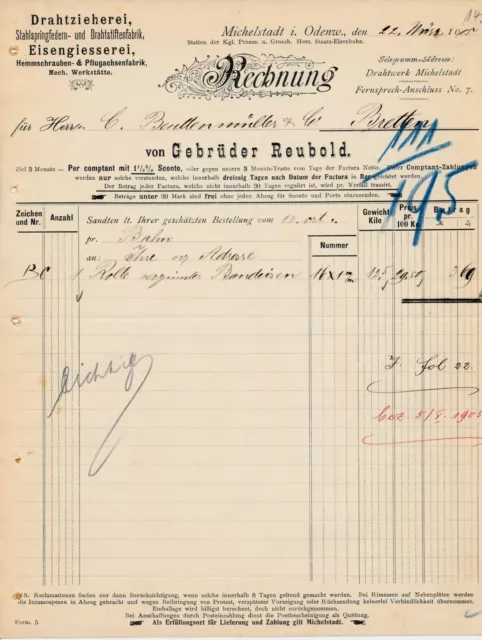 Drahtzieherei,
Stahlspringfedern- und Drahtstiftenfabrik,
Eisengiesserei,
Hemmschrauben- & Pflugachsenfabrik,
Mech. Werkstätte.
Michelstadt i. Odenw., den 22. März 1905
Station der Kgl. Preuss. u. Grossh. Hess. Staats-Eisenbahn.
Rechnung
Telegramm-Adresse:
Drahtwerk Michelstadt
Fernsprech-Anschluss No. 7.
für Herrn C. Beuttenmüller & Co Bretten
111
von Gebrüder Reubold.
195
Ziel 3 Monate — Per comptant mit 1½% Sconto, oder gegen unsere 3 Monats-Tratte vom Tage der Factura Netto. Unter Comptant-Zahlungen
werden nur solche verstanden, welche innerhalb dreissig Tagen nach Datum der Factura in Bar geleistet werden.
Der Betrag jeder Factura, welche nicht innerhalb 30 Tagen regulirt ist, wird pr. Verfall trassirt.
Beträge unter 30 Mark sind frei ohne jeden Abzug für Sconto und Porto einzusenden.
Zeichen und Nr. Anzahl Sandten lt. Ihrer geschätzten Bestellung vom Nummer Gewicht Kilo Preis pr. 100 Kg. Betrag
pr. Bahn
an: Ihre Adresse
BC 1 Rolle verzinntes Bandeisen 16 x 1 12,5 29.50 3 69
fol 22.
Wichtig
1905
NB. Reklamationen finden nur dann Berücksichtigung, wenn solche innerhalb 8 Tagen geltend gemacht werden. Bei Rimessen auf Nebenplätze werden
die Incassospesen in Abzug gebracht und wegen Beibringung von Protest, verspäteter Vorzeigung oder Rücksendung keinerlei Verbindlichkeit übernommen.
Emballage wird billigst berechnet, doch nicht zurückgenommen.
Bei Anschaffungen durch Posteinzahlung dient die Postbescheinigung als Quittung.
Form. 5 Als Erfüllungsort für Lieferung und Zahlung gilt Michelstadt.